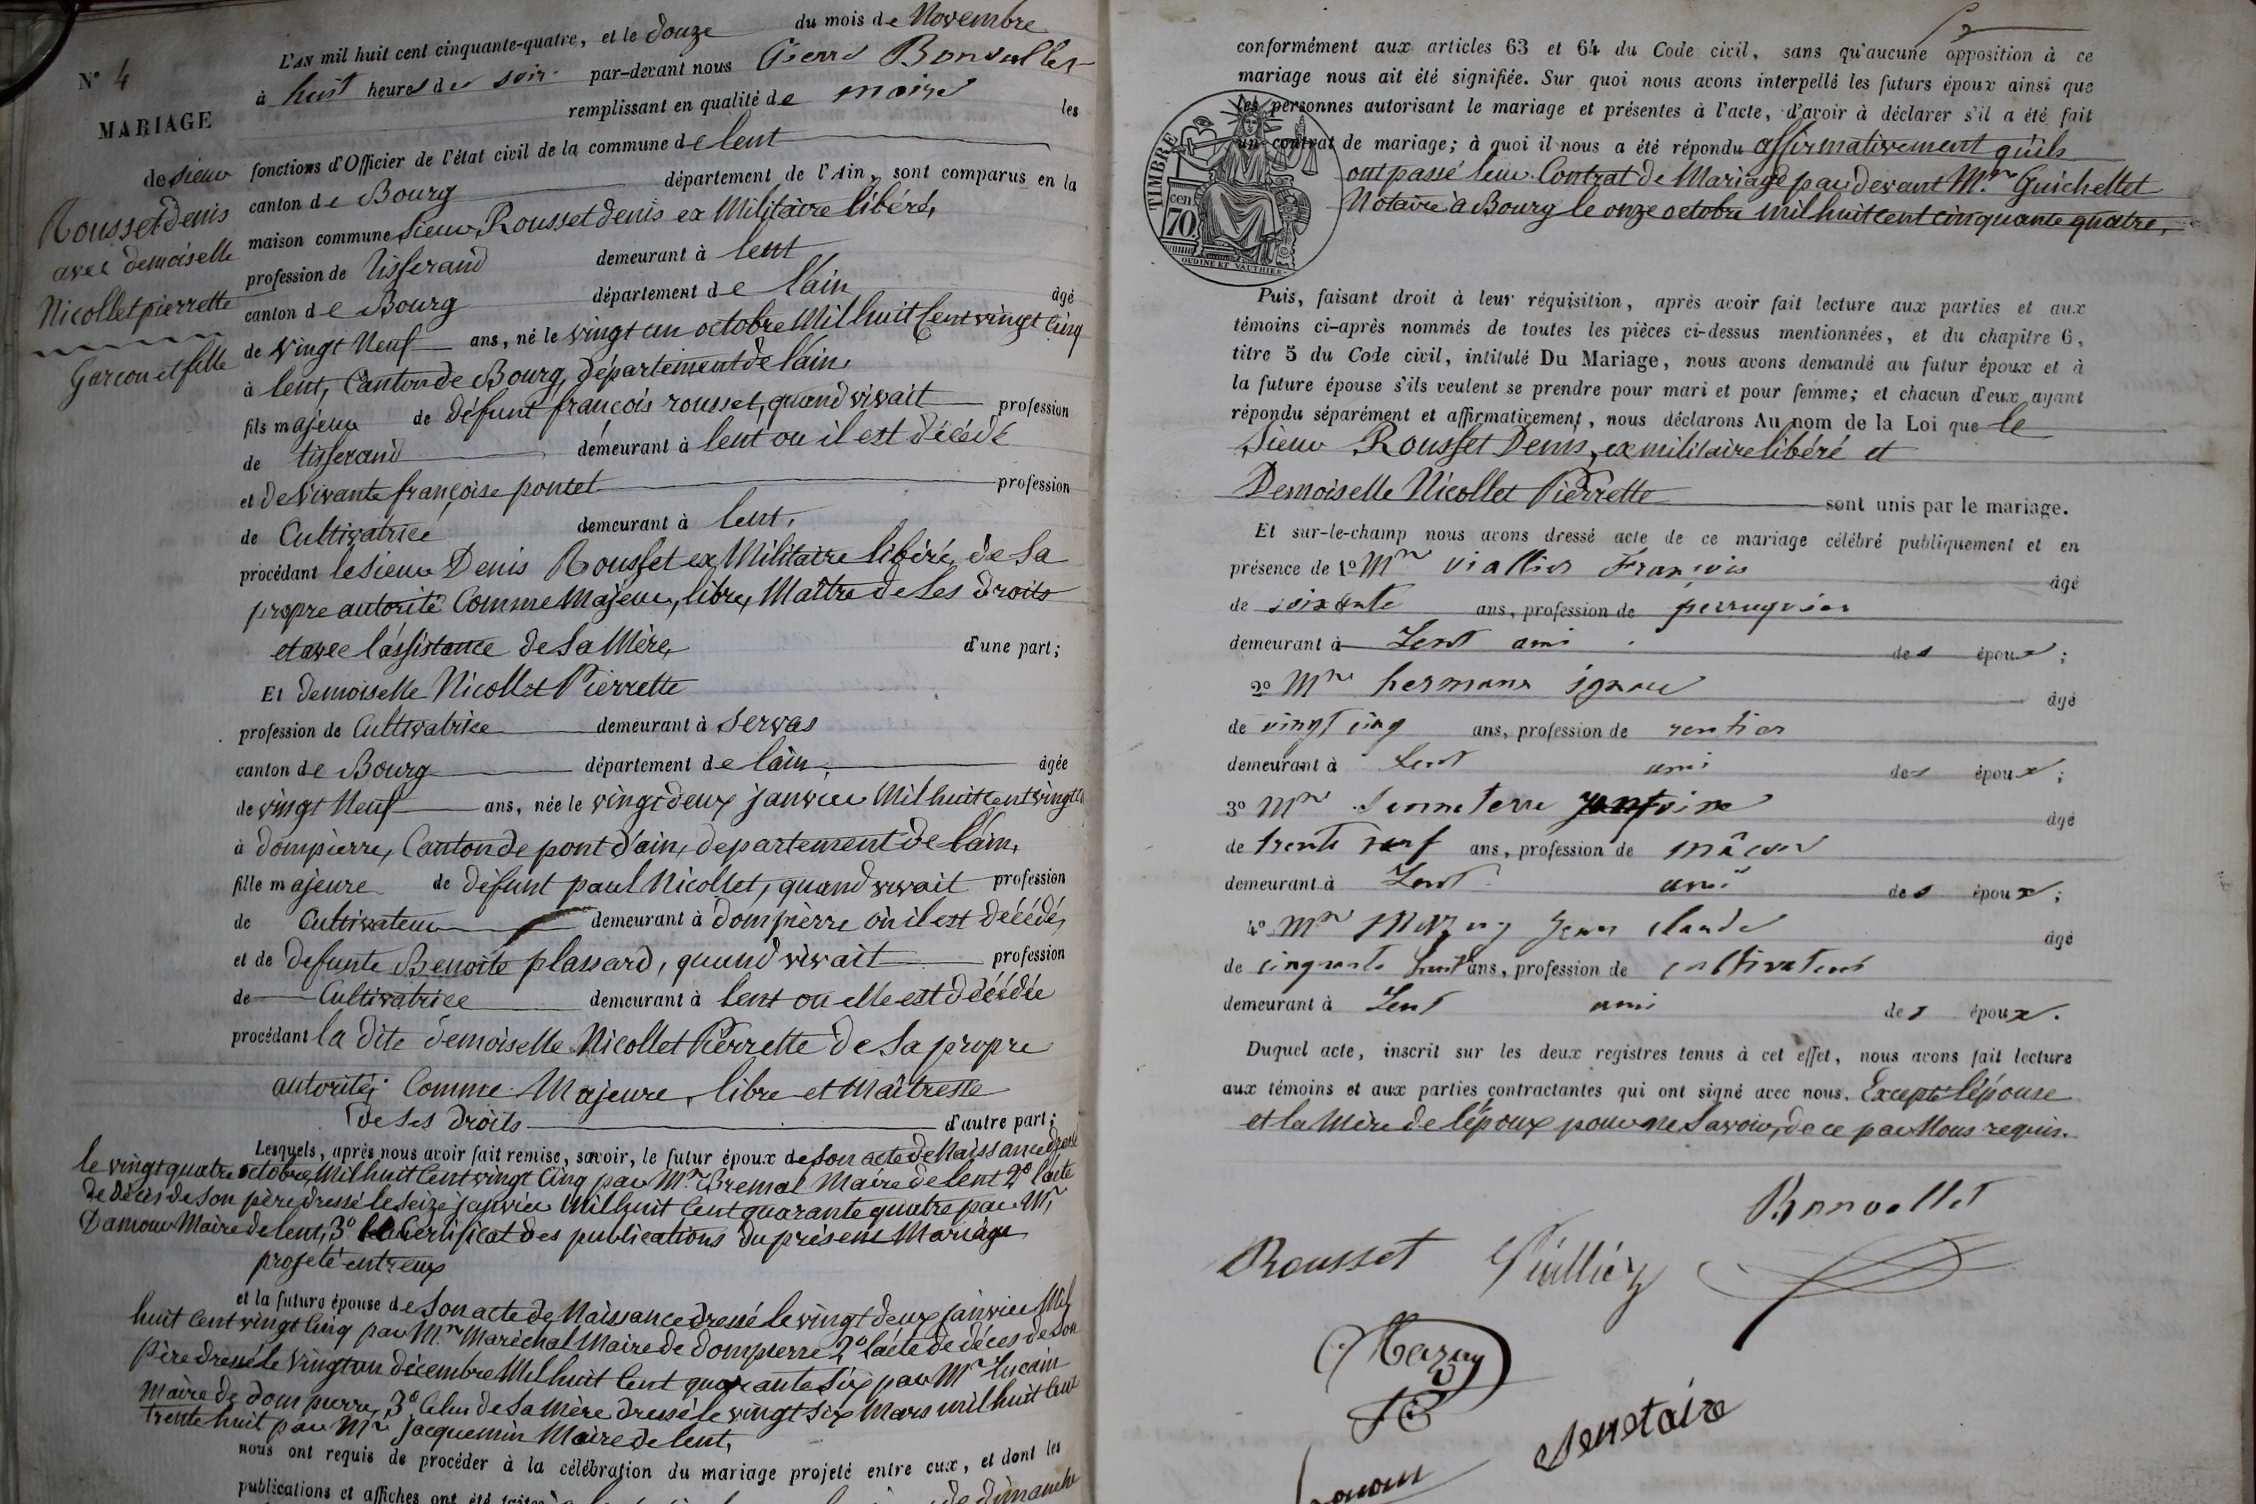 N° 4
MARIAGE
de sieur
Rousset denis
avec demoiselle
Nicollet pierrette
Garcon et fille
L'AN mil huit cent cinquante-quatre, et le douze du mois de Novembre
à huit heures du soir par-devant nous Pierre Bonvallet
remplissant en qualité de maire les
fonctions d'Officier de l'état civil de la commune de lent
canton de Bourg département de l'Ain, sont comparus en la
maison commune sieur Rousset denis ex Militaire libéré,
profession de tisserand demeurant à lent
canton de Bourg département de l'ain âgé
de vingt Neuf ans, né le vingt un octobre Mil huit Cent vingt Cinq
à lent, Canton de Bourg, département de l'ain,
fils majeur de défunt françois rousset, quand vivait profession
de tisserand demeurant à lent ou il est décédé
et de vivante françoise pontet profession
de Cultivatrice demeurant à lent,
procédant le sieur Denis Rousset ex Militaire libéré, de sa
propre autorité Comme Majeur, libre, Maître de ses droits
et avec l'assistance de sa Mère, d'une part;
Et demoiselle Nicollet Pierrette
profession de Cultivatrice demeurant à servas
canton de Bourg département de l'ain, âgée
de vingt Neuf ans, née le vingt deux janvier Mil huit cent vingt
à dompierre, Canton de pont d'ain, departement de l'ain,
fille majeure de défunt paul Nicollet, quand vivait profession
de Cultivateur demeurant à dompierre où il est décédé,
et de defunte Benoite plassard, quand vivait profession
de Cultivatrice demeurant à lent ou elle est décédée
procédant la dite demoiselle Nicollet Pierrette de sa propre
autorité, Comme Majeure, libre et Maîtresse
de ses droits d'autre part;
Lesquels, après nous avoir fait remise, savoir, le futur époux de son acte de Naissance dressé
le vingt quatre octobre Mil huit Cent vingt Cinq par Mr Bremal Maire de lent 2° l'acte
de décès de son père dressé le seize janvier Mil huit Cent quarante quatre par Mr
Damour Maire de lent, 3° le Certificat des publications du présent Mariage
projeté entr'eux
et la future épouse de son acte de Naissance dressé le vingt deux janvier Mil
huit Cent vingt Cinq par Mr Maréchal Maire de dompierre 2° l'acte de déces de son
Père dressé le vingt un décembre Mil huit Cent quarante Six par Mr Lucain
Maire de dompierre, 3° Celui de sa Mère dressé le vingt six Mars mil huit Cent
trente huit par Mr jacquemin Maire de lent,
nous ont requis de procéder à la célébration du mariage projeté entre eux, et dont les
publications et affiches ont été faites dimanche
conformément aux articles 63 et 64 du Code civil, sans qu'aucune opposition à ce
mariage nous ait été signifiée. Sur quoi nous avons interpellé les futurs époux ainsi que
les personnes autorisant le mariage et présentes à l'acte, d'avoir à déclarer s'il a été fait
un contrat de mariage; à quoi il nous a été répondu affirmativement qu'ils
ont passé leur Contrat de Mariage par devant Mr Guichellet
Notaire à Bourg le onze octobre mil huit cent cinquante quatre,
TIMBRE
70 cen
OUDINÉ ET VAUTHIER
Puis, faisant droit à leur réquisition, après avoir fait lecture aux parties et aux
témoins ci-après nommés de toutes les pièces ci-dessus mentionnées, et du chapitre 6,
titre 5 du Code civil, intitulé Du Mariage, nous avons demandé au futur époux et à
la future épouse s'ils veulent se prendre pour mari et pour femme; et chacun d'eux ayant
répondu séparément et affirmativement, nous déclarons Au nom de la Loi que le
Sieur Rousset Denis, ex militaire libéré et
Demoiselle Nicollet Pierrette sont unis par le mariage.
Et sur-le-champ nous avons dressé acte de ce mariage célébré publiquement et en
présence de 1° Mr viallier François âgé
de soixante ans, profession de perruquier
demeurant à Lent ami des époux;
2° Mr hermann ignace âgé
de vingt cinq ans, profession de rentier
demeurant à Lent ami des époux;
3° Mr Senneterre antoine âgé
de trente neuf ans, profession de mâcon
demeurant à Lent ami des époux;
4° Mr Mazuy Jean Claude âgé
de cinquante huit ans, profession de cultivateur
demeurant à Lent ami des époux.
Duquel acte, inscrit sur les deux registres tenus à cet effet, nous avons fait lecture
aux témoins et aux parties contractantes qui ont signé avec nous. Excepté l'épouse
et la Mère de l'époux pour ne savoir, de ce par Nous requis.
Bonvallet
Rousset Viallier
Mazuy
Senetaire